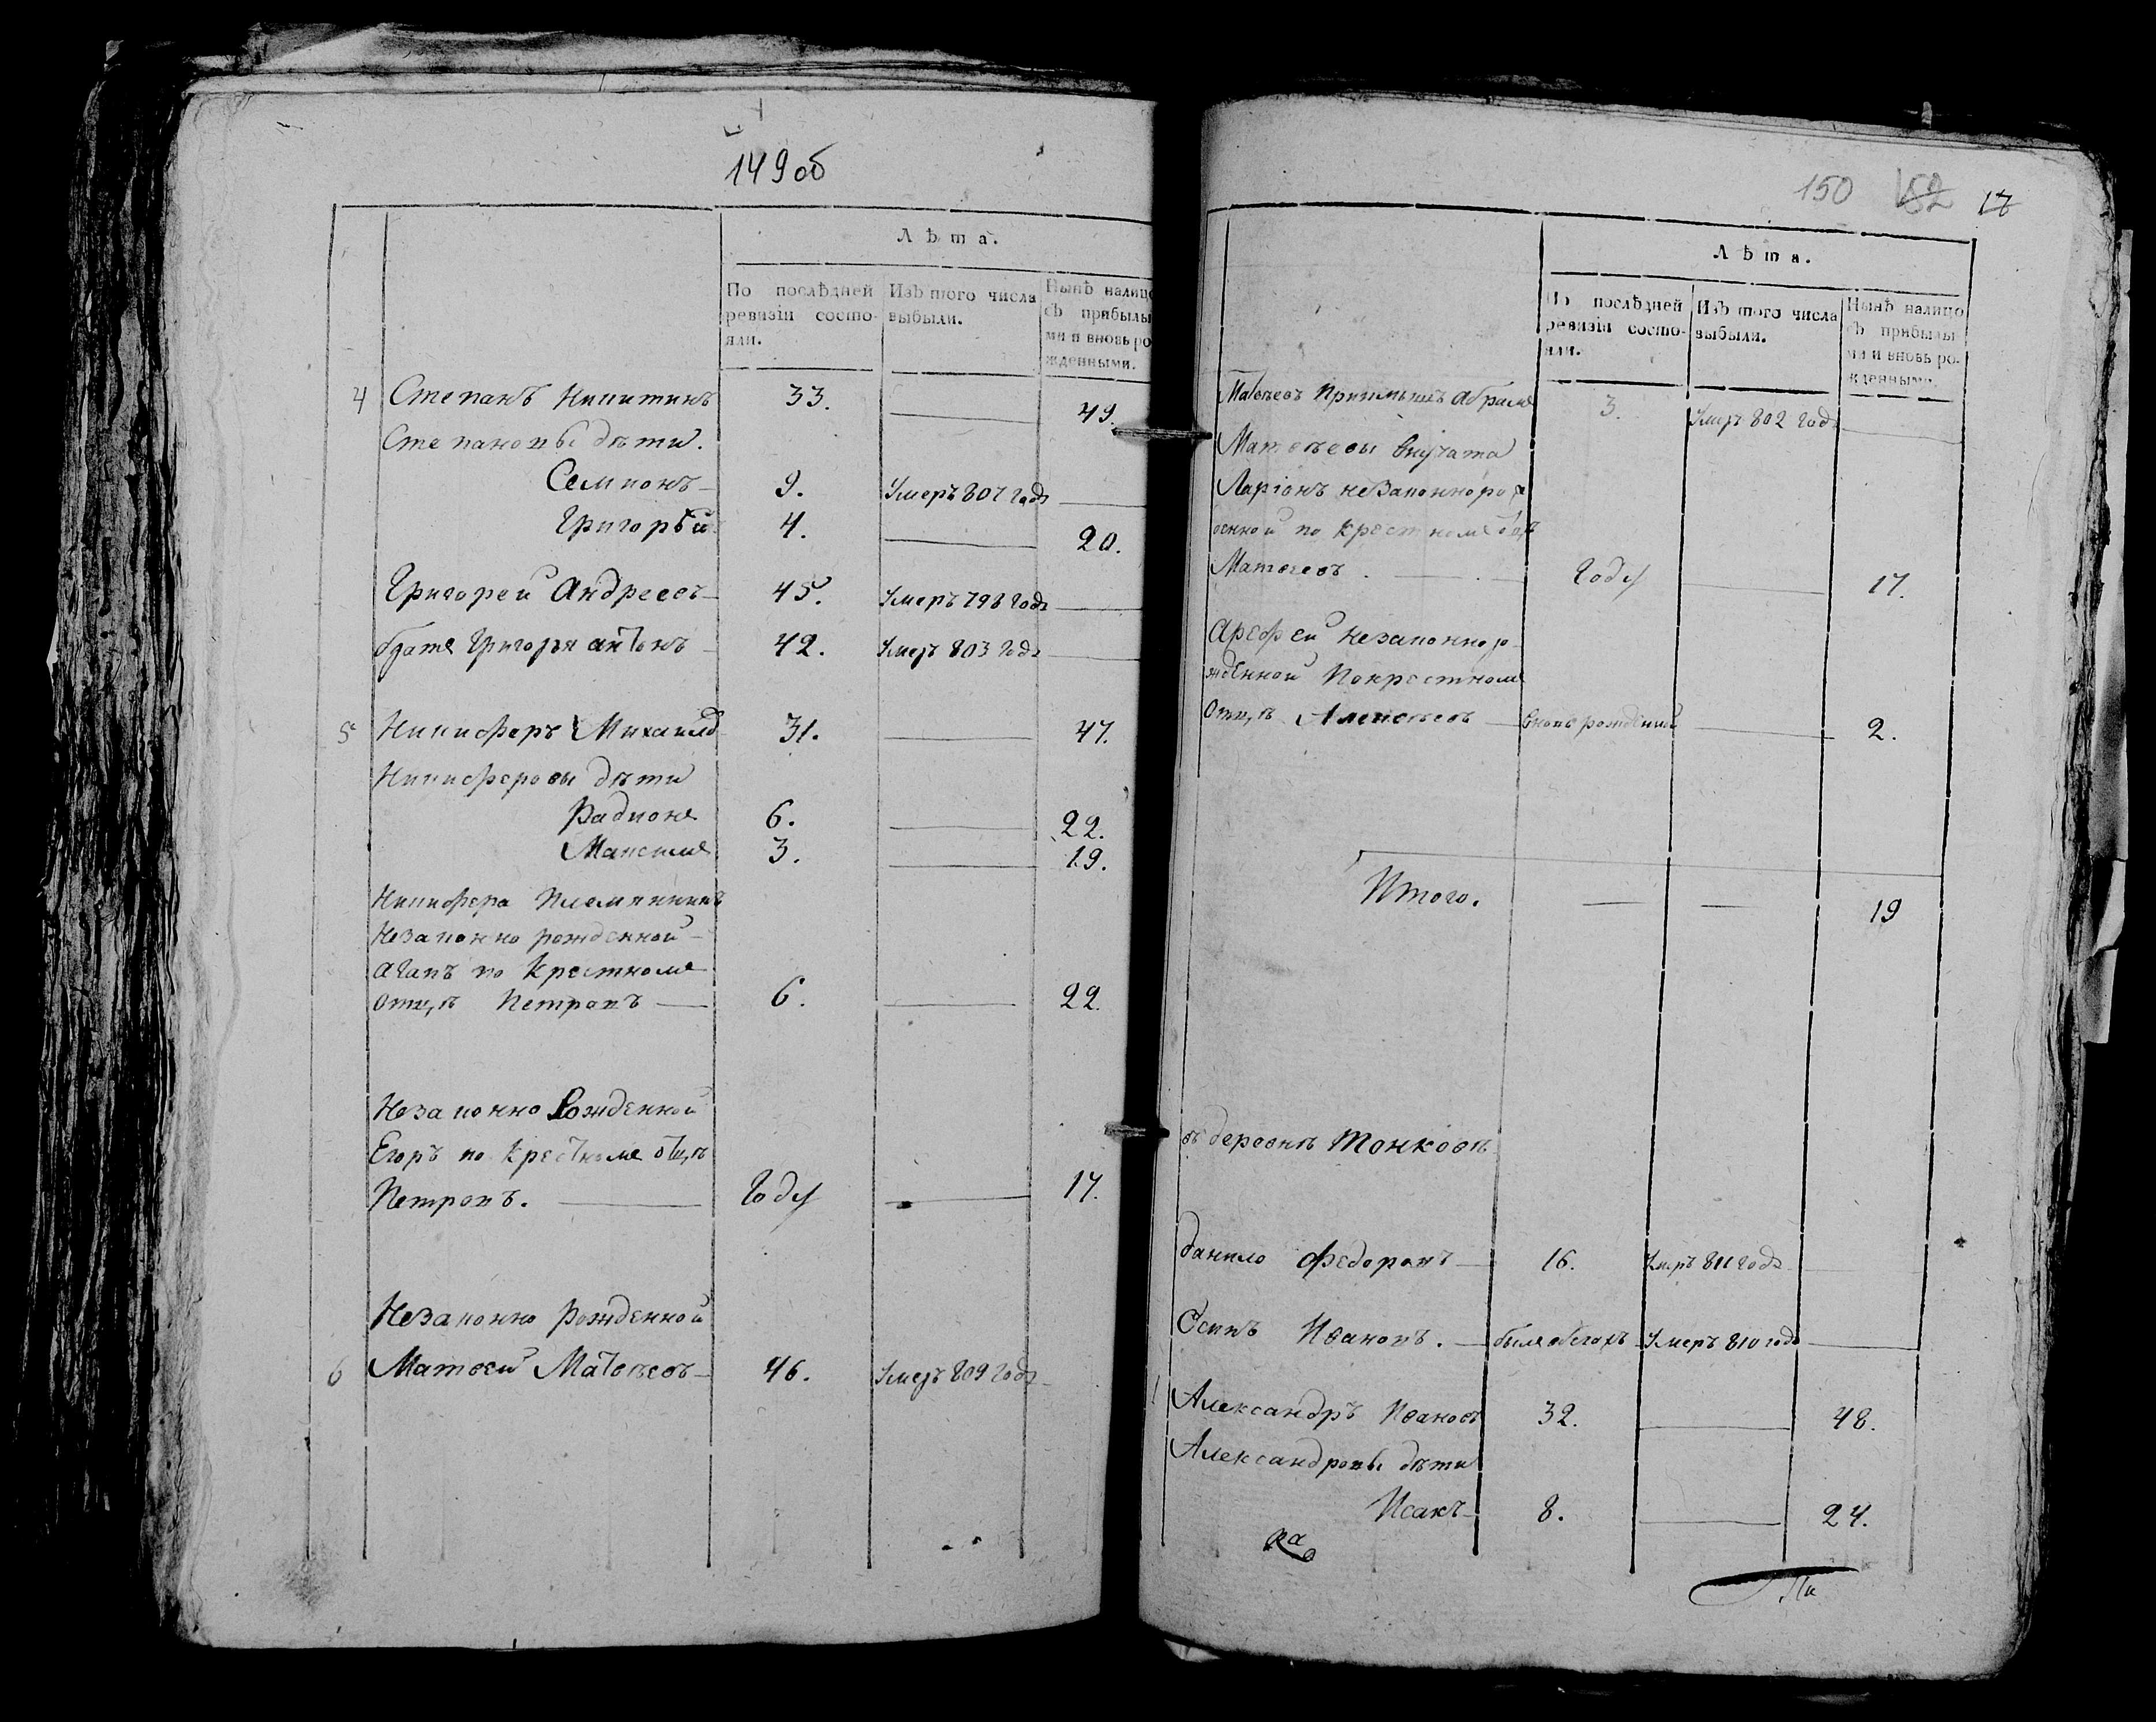 149 об
Лѣта.
По послѣдней ревизіи состояли.
Изъ того числа выбыли.
Нынѣ налицо съ прибылыми и вновь рожденными.
4 Степанъ Никитинъ 33. — 49.
Степановы дѣти.
Семионъ 9. Умеръ 807 годъ —
Григорьй 4. — 20.
Григорей Андреевъ 45. Умеръ 798 годъ —
братъ Григорья антонъ 42. Умеръ 803 годъ —
5 Никиферъ Михаилъ 31. — 47.
Никиферовы дѣти
Радионъ 6. — 22.
Максимъ 3. — 19.
Никифера племянникъ
Незаконно рожденной
агапъ по крестному
отцѣ Петровъ — 6. — 22.
Незаконно Рожденной
Егоръ по крестному отцѣ
Петровъ. — Году — 17.
Незаконно Рожденной
6 Матвей Матвѣевъ 46. Умеръ 809 годъ
150 152 17
Лѣта.
По послѣдней ревизіи состояли.
Изъ того числа выбыли.
Нынѣ налицо съ прибылыми и вновь рожденными.
Матвѣевъ Приимышъ Абрамъ 3. Умеръ 802 годъ —
Матвѣевы внучата
Ларіонъ незаконнорож
денной по крестному отцѣ
Матвеевъ. — Году — 17.
Арефей незаконноро
жденной покрестному
отцѣ Алексѣевъ — вновь рожденный — 2.
Итого. — — 19
въ деревнѣ Тонковѣ
данило Федоровъ — 16. Умеръ 811 годъ —
Осипъ Ивановъ. — былъ в бегахъ Умеръ 810 годъ —
1 Александръ Ивановъ 32. — 48.
Александровы дѣти
Исакъ 8. — 24.